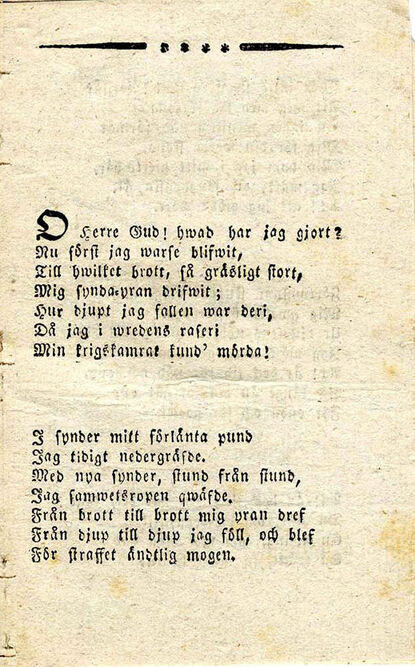 O Herre Gud! hwad har jag gjort?
Nu först jag warse blifwit,
Till hwilket brott, så gräsligt stort,
Mig synda-yran drifwit;
Hur djupt jag fallen war deri,
Då jag i wredens raseri
Min krigskamrat kund' mörda!
I synder mitt förlänta pund
Jag tidigt nedergräfde.
Med nya synder, stund från stund,
Jag samwetsropen qwäfde.
Från brott till brott mig yran dref
Från djup till djup jag föll, och blef
För straffet ändtlig mogen.